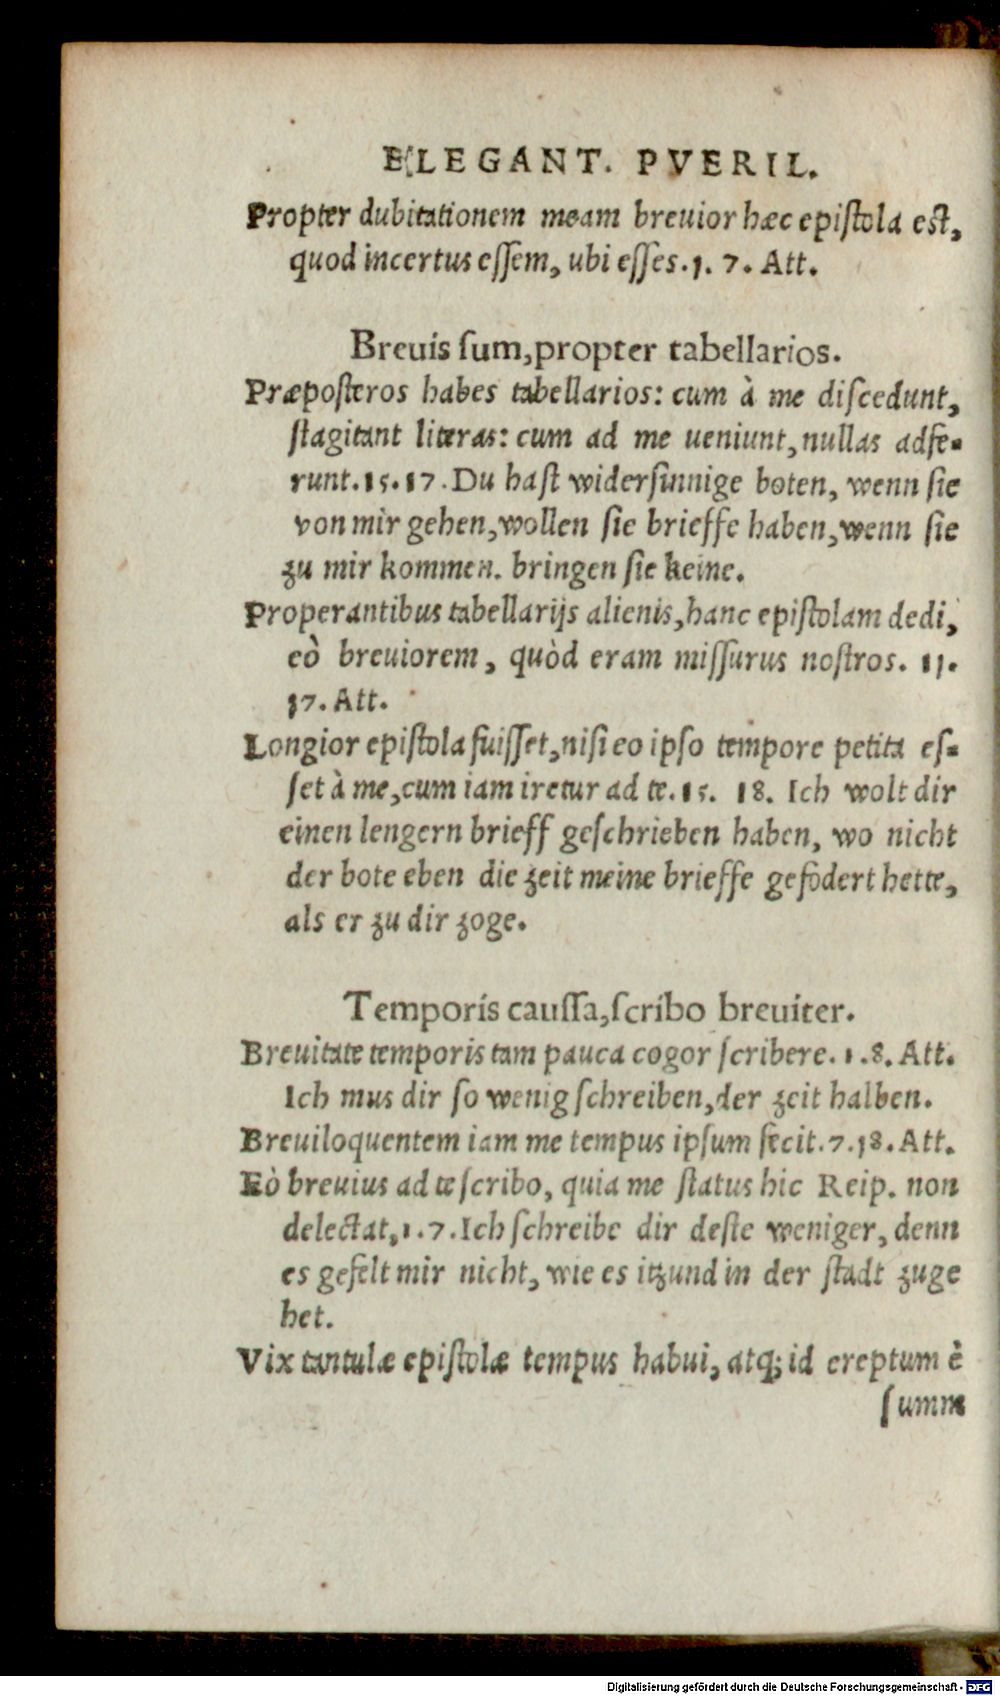 ELEGANT. PVERIL.
Propter dubitationem meam breuior hæc epistola est,
quod incertus essem, ubi esses. 1. 7. Att.
Breuis sum, propter tabellarios.
Præposteros habes tabellarios: cum à me discedunt,
flagitant literas: cum ad me ueniunt, nullas adfe-
runt. 15. 17. Du hast widersinnige boten, wenn sie
von mir gehen, wollen sie brieffe haben, wenn sie
zu mir kommen. bringen sie keine.
Properantibus tabellarijs alienis, hanc epistolam dedi,
eò breuiorem, quòd eram missurus nostros. 11.
17. Att.
Longior epistola fuisset, nisi eo ipso tempore petita es-
set à me, cum iam iretur ad te. 15. 18. Ich wolt dir
einen lengern brieff geschrieben haben, wo nicht
der bote eben die zeit meine brieffe gefodert hette,
als er zu dir zoge.
Temporis caussa, scribo breuiter.
Breuitate temporis tam pauca cogor scribere. 1. 8. Att.
Ich mus dir so wenig schreiben, der zeit halben.
Breuiloquentem iam me tempus ipsum fecit. 7. 18. Att.
Eò breuius ad te scribo, quia me status hic Reip. non
delectat, 1. 7. Ich schreibe dir deste weniger, denn
es gefelt mir nicht, wie es itzund in der stadt zuge
het.
Vix tantulæ epistolæ tempus habui, atq; id ereptum è
summ
Digitalisierung gefördert durch die Deutsche Forschungsgemeinschaft - DFG